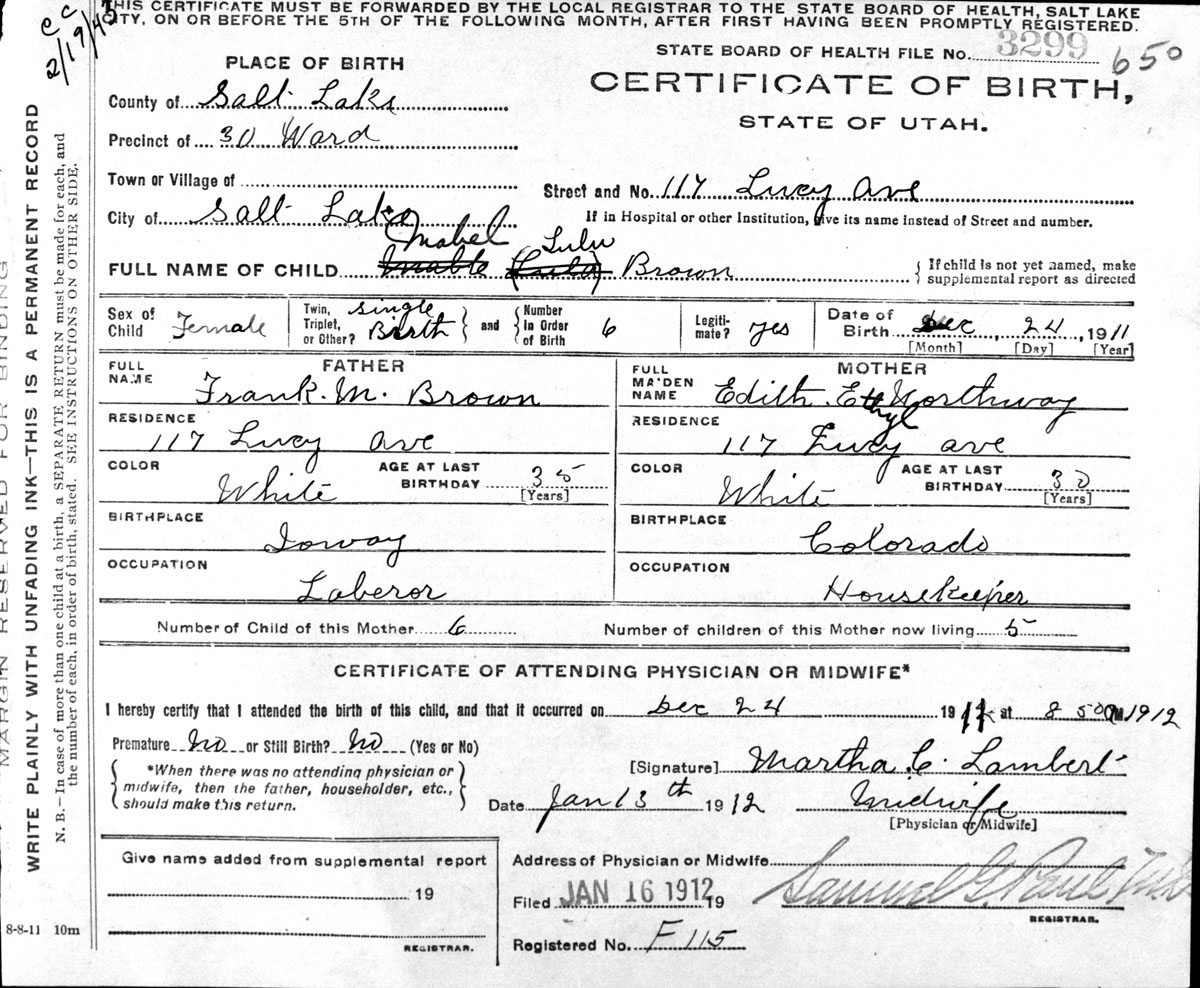 c c
2/19/43
THIS CERTIFICATE MUST BE FORWARDED BY THE LOCAL REGISTRAR TO THE STATE BOARD OF HEALTH, SALT LAKE
CITY, ON OR BEFORE THE 5TH OF THE FOLLOWING MONTH, AFTER FIRST HAVING BEEN PROMPTLY REGISTERED.
STATE BOARD OF HEALTH FILE No. 3299 650
PLACE OF BIRTH
CERTIFICATE OF BIRTH,
STATE OF UTAH.
County of Salt Lake
Precinct of 30 Ward
Town or Village of
Street and No. 117 Lucy Ave
City of Salt Lake
If in Hospital or other Institution, give its name instead of Street and number.
Mabel Lulu
FULL NAME OF CHILD Mable (Lula) Brown
{ If child is not yet named, make
supplemental report as directed
Sex of Child Female
Twin, Triplet, or Other? single Birth } and { Number In Order of Birth 6
Legiti-mate? yes
Date of Birth Dec 24, 1911
[Month] [Day] [Year]
FATHER
MOTHER
FULL NAME Frank. M. Brown
FULL MAIDEN NAME Edith. Ethyl Northway
RESIDENCE 117 Lucy Ave
RESIDENCE 117 Lucy ave
COLOR White AGE AT LAST BIRTHDAY 35 [Years]
COLOR White AGE AT LAST BIRTHDAY 30 [Years]
BIRTHPLACE Ioway
BIRTHPLACE Colorado
OCCUPATION Laberor
OCCUPATION Housekeeper
Number of Child of this Mother 6 Number of children of this Mother now living 5
CERTIFICATE OF ATTENDING PHYSICIAN OR MIDWIFE*
I hereby certify that I attended the birth of this child, and that it occurred on Dec 24 1911 at 8 50 M. 1912
Premature No or Still Birth? No (Yes or No)
{ *When there was no attending physician or
midwife, then the father, householder, etc.,
should make this return. }
[Signature] Martha. C. Lambert
Date Jan 13th 1912 Midwife
[Physician or Midwife]
Give name added from supplemental report
19
REGISTRAR.
Address of Physician or Midwife
Filed JAN 16 1912 19 Samuel G. Paul M.D.
REGISTRAR.
Registered No. F 115
8-8-11 10m
MARGIN RESERVED FOR BINDING
WRITE PLAINLY WITH UNFADING INK—THIS IS A PERMANENT RECORD
N. B.—In case of more than one child at a birth, a SEPARATE RETURN must be made for each, and
the number of each, in order of birth, stated. SEE INSTRUCTIONS ON OTHER SIDE.